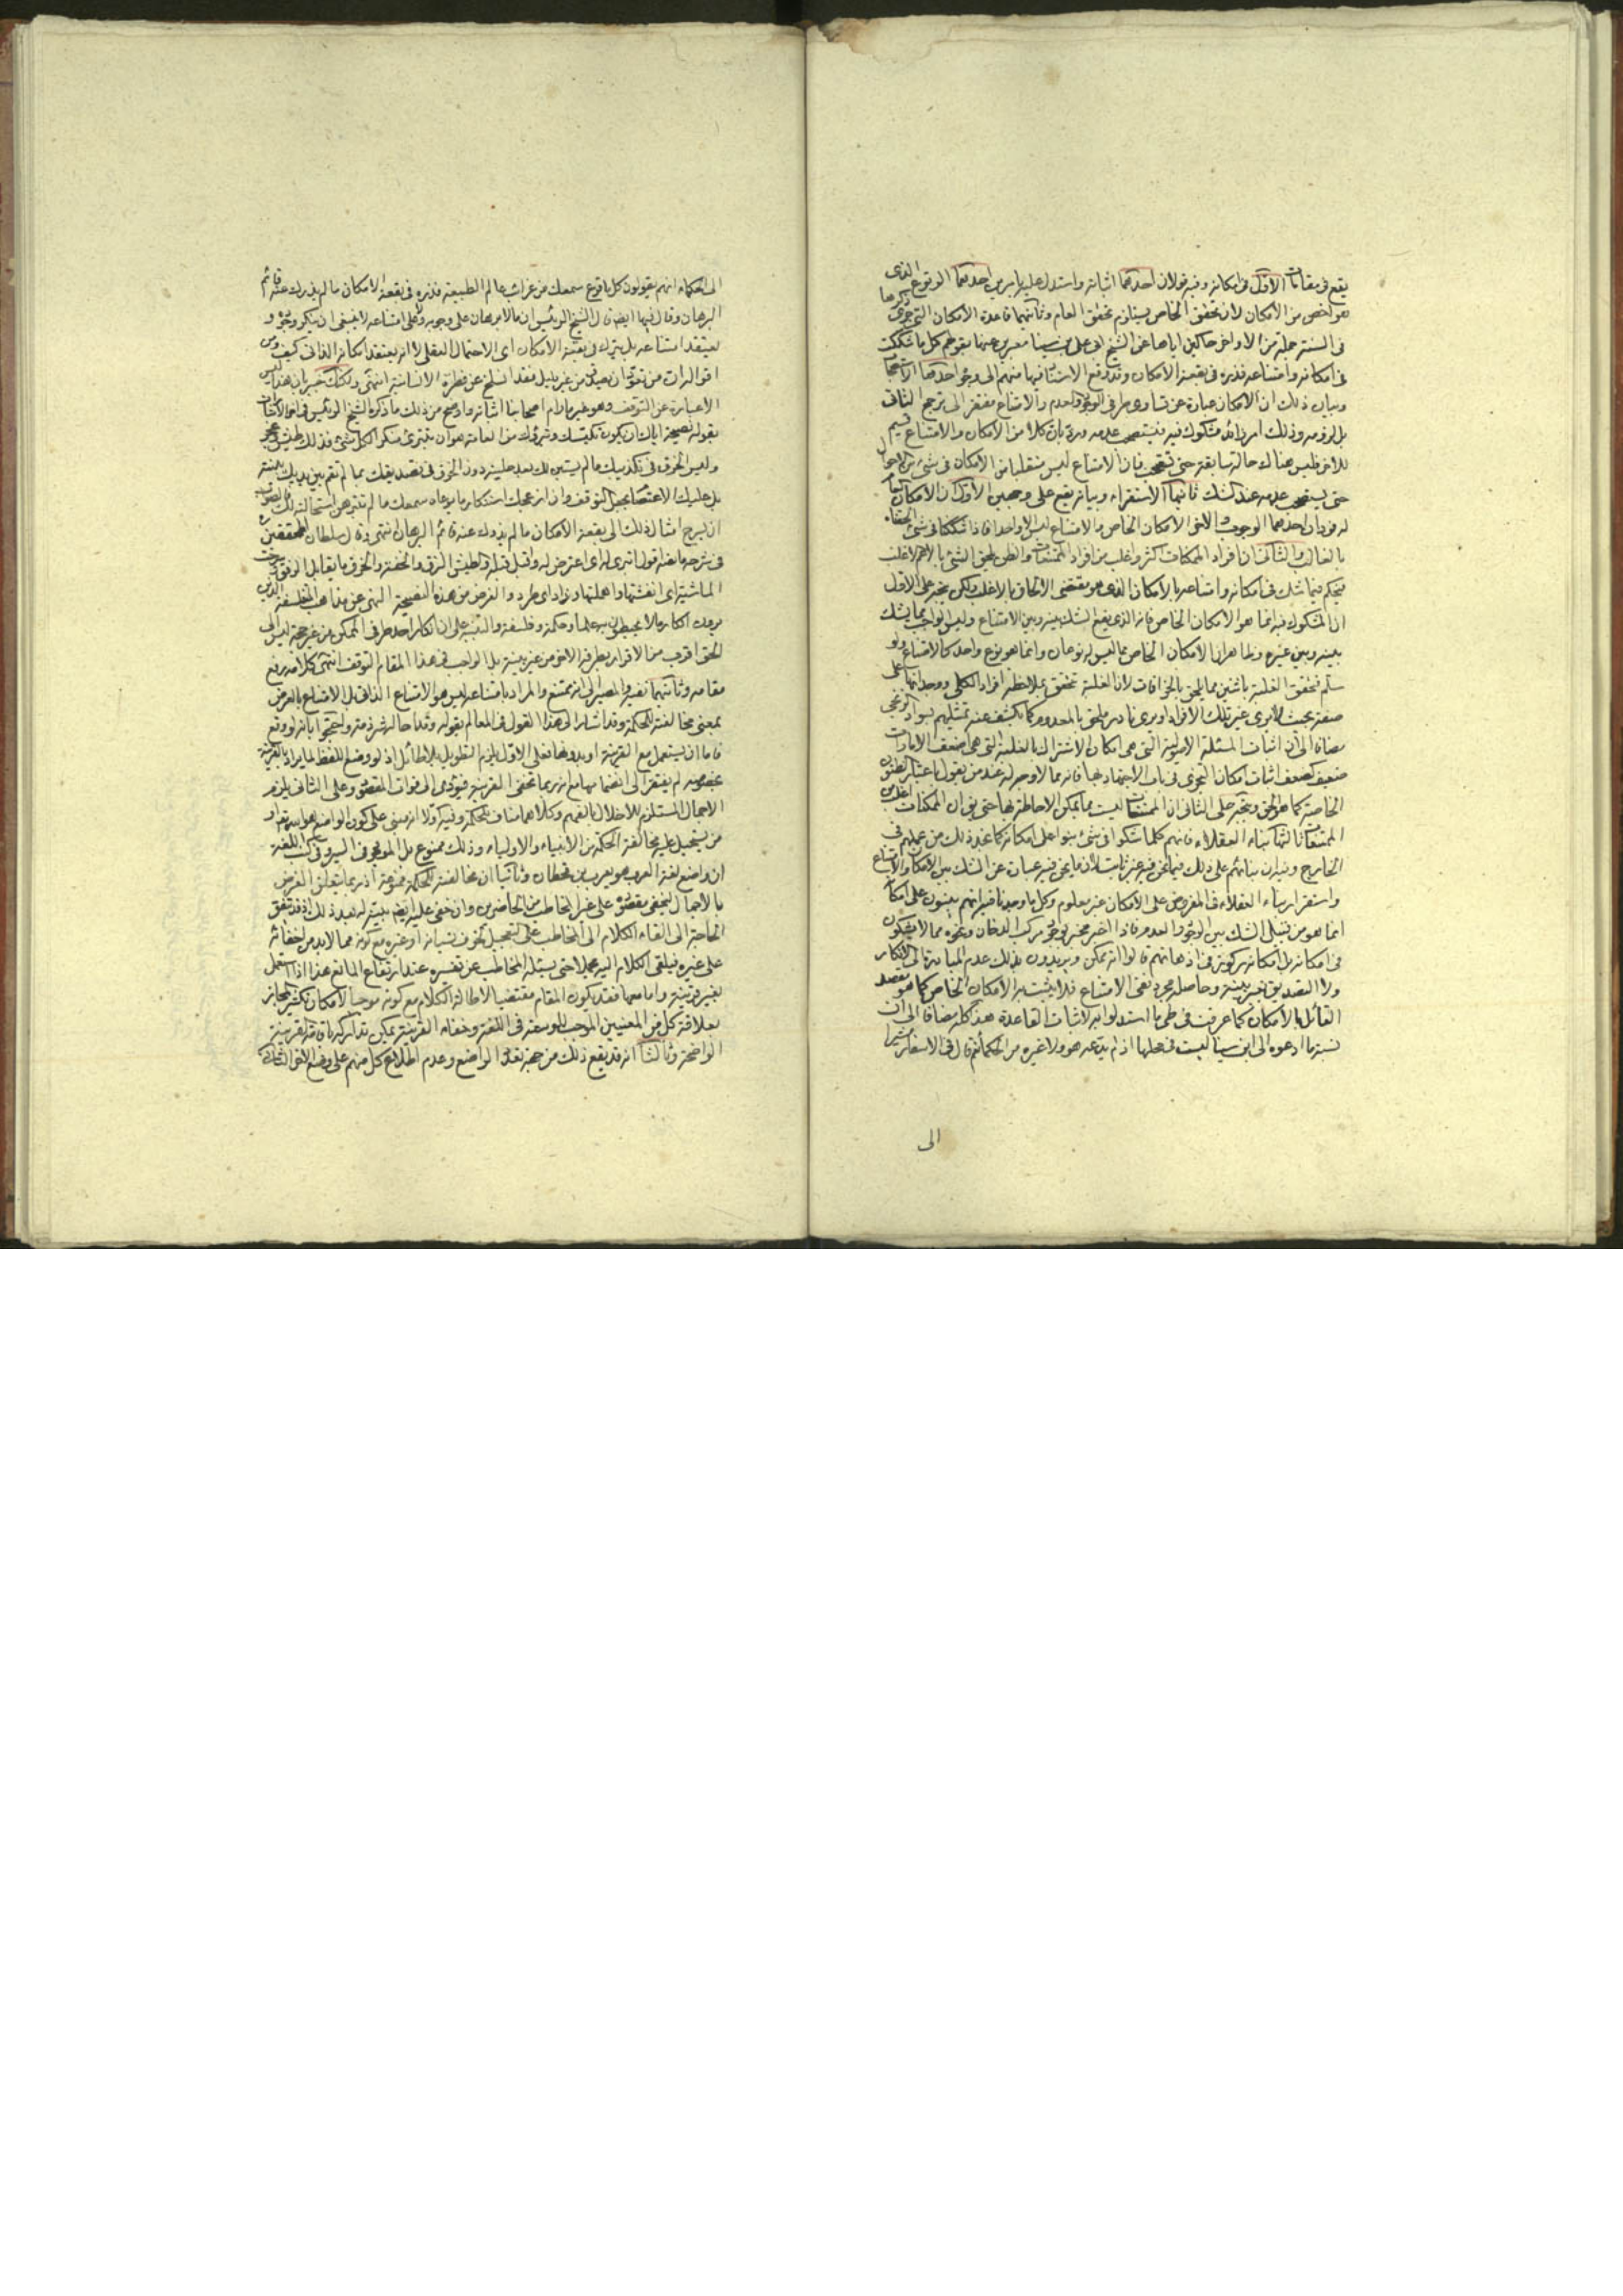 يقع فى مقامات الاول فى امكانه وفيه قولان احدهما اثباته واستدل عليه بامرين احدهما الوقوع الذى
هو اخص من الامكان لان تحقق الخاص يستلزم تحقق العام وثانيهما قاعدة الامكان التى جرى ذكرها
فى السنة جملة من الاواخر حاكين اياها عن الشيخ ابى على بن سينا معبرين عنها بقولهم كل ما شككت
فى امكانه وامتناعه فذره فى بقعة الامكان وقد وقع الاستناد فيها منهم الى وجوه احدها الاستصحاب
وبيان ذلك ان الامكان عبارة عن تساوى طرفى الوجود والعدم والامتناع مفتقر الى ترجح الثانى
بل لزومه وذلك امر زائد مشكوك فيه فيستصحب عدمه ورد بان كلا من الامكان والامتناع قسيم
للاخر فليس هناك حالة سابقة حتى تستصحب فان الامتناع ليس منقلبا من الامكان فى شىء من الاحوال
حتى يستصحب عدمه عند الشك ثانيها الاستقراء وبيانه يقع على وجهين الاول ان الامكان العام
له فردان احدهما الوجوب والاخر الامكان الخاص والامتناع ليس الا واحدا فاذا شككنا فى شىء الحقناه
بالغالب والثانى ان افراد الممكنات اكثر واغلب من افراد الممتنعات والظن يلحق الشىء بالاعم الاغلب
فيحكم فيما شك فى امكانه وامتناعه بالامكان الذى هو مقتضى الالحاق بالاغلب ولكن يتجه على الاول
ان المشكوك فيه انما هو الامكان الخاص فانه الذى يقع الشك بينه وبين الامتناع وليس الواجب مما يشك
بينه وبين غيره وظاهر ان الامكان الخاص مما ليس له نوعان وانما هو نوع واحد كالامتناع ولو
سلم فتحقق الغلبة باثنين مما يلحق بالخرافات لان الغلبة تتحقق بملاحظة افراد الكلى ووجدانها على
صفة بحيث لا يرى غير تلك الافراد او يرى نادر ملحق بالمعدوم كما يكشف عنه تمثيلهم بسواد الزنجى
مضافا الى ان اثبات المسئلة الاصولية التى هى امكان الاشتراك بالغلبة التى هى اضعف الامارات
ضعيف كضعف اثبات امكان التجزى فى باب الاجتهاد بها فانه مما لا وجه له عند من يقول باعتبار الظنون
الخاصة كما هو الحق ويتجه على الثانى ان الممتنعات ليست مما يمكن الاحاطة بها حتى يق ان الممكنات اغلب من
الممتنعات ثالثها بناء العقلاء فانهم كلما شكوا فى شىء بنوا على امكانه كما عند ذلك من عملهم فى
الخارج وفيه ان بنائهم على ذلك فيما نحن فيه غير ثابت لان ما نحن فيه عبارة عن الشك بين الامكان والامتناع
واستقرار بناء العقلاء فى المفروض على الامكان غير معلوم وكل ما وجدنا فيه انهم يبنون على امكا
انما هو من قبيل الشك بين الوجود والعدم فاذا اخبر مخبر بوجود مركب الدخان ونحوه مما لا يشكون
فى امكانه بل امكانه مركوز فى اذهانهم قالوا انه يمكن ويريدون بذلك عدم المبادرة الى الانكار
ولا التصديق بغير بينة وحاصله مجرد نفى الامتناع فلا يثبت به الامكان الخاص كما هو مقصد
القائل بالامكان كما عرفت فى طى ما استدلوا به لاثبات القاعدة هذا كله مضافا الى ان
نسبة ما ادعوه الى ابن سينا ليست فى محلها اذ لم يدّعه هو ولا غيره من الحكماء ثم قال فى الاسفار مشيرا
الى
الى الحكماء انهم يقولون كل ما قرع سمعك من غرائب عالم الطبيعة فذره فى بقعة الامكان ما لم يذدك عنه قائم
البرهان وقال فيها ايضا قال الشيخ الرئيس ان ما لا برهان على وجوبه وعلى امتناعه لا ينبغى ان ينكر وجوده و
يعتقد امتناعه بل يترك فى بقعة الامكان اى الاحتمال العقلى لا انه يعتقد امكانه الذاتى كيف ومن
اقواله ان من تعود ان يصدق من غير دليل فقد انسلخ عن فطرة الانسانية انتهى ولكنك خبير بان هذا ليس
الا عبارة عن التوقف وهو غير ما رام اصحابنا اثباته واوضح من ذلك ما ذكره الشيخ الرئيس فى اخر الاشارات
بقوله نصيحة اياك ان يكون تكيسك وتبرؤك من العامة هو ان تنبرى منكرا لكل شىء فذلك طيش وعجز
وليس الخرق فى تكذيبك ما لم يستبن لك بعد جليته دون الخرق فى تصديقك بما لم تقم بين يديك بينة
بل عليك الاعتصام بحبل التوقف وان ازعجك استنكار ما يوعاه سمعك ما لم تتبرهن استحالته لك فالصواب
ان تسرح امثال ذلك الى بقعة الامكان ما لم يذدك عنه قائم البرهان انتهى وقال سلطان المحققين
فى شرحه ما لفظه اقول انبرى له اى اعترض له واقبل قبله والطيش النزق والخفة والخرق ما يقابل الرفق وسرحت
الماشية اى انفشتها واهملتها وذاد اى طرد والغرض من هذه النصيحة النهى عن مذاهب المتفلسفة الذين
يرون انكار ما لا يحيطون به علما وحكمة وفلسفة والتنبيه على ان انكار احد طرفى الممكن من غير حجة ليس الى
الحق اقرب من الاقرار بطرفه الاخر من غير بينة بل الواجب فى هذا المقام التوقف انتهى كلامه رفع
مقامه وثانيهما نفيه والمصير الى انه ممتنع والمراد بامتناعه ليس هو الامتناع الذاتى بل الامتناع بالعرض
بمعنى مخالفته للحكمة وقد اشار الى هذا القول فى المعالم بقوله وقد احاله شرذمة واحتجوا بانه لو وقع
فاما ان يستعمل مع القرينة او بدونها فعلى الاول يلزم التطويل بلا طائل اذ لو وضع للفظ لما يراد بالقرينة
بخصوصه لم يفتقر الى انضمامها مع انه ربما تخفى القرينة فيؤدى الى فوات المقصود وعلى الثانى يلزم
الاجمال المستلزم للاخلال بالفهم وكلاهما مناف للحكمة وفيه اولا انه مبنى على كون الواضع هو الله تعالى او
من يستحيل عليه مخالفة الحكمة من الانبياء والاولياء وذلك ممنوع بل الموجود فى السير وفى كتب اللغة
ان واضع لغة العرب هو يعرب بن قحطان وثانيا ان مخالفته للحكمة ممنوعة اذ ربما يتعلق الغرض
بالاجمال ليخفى مقصوده على غير المخاطب من الحاضرين وان خفى عليه ايضا يبينه له بعد ذلك اذ قد تتفق
الحاجة الى القاء الكلام الى المخاطب على التعجيل لخوف نسيانه او غيره مع كونه مما لا بد من اخفائه
على غيره فيلقى الكلام اليه مجملا حتى يسئله المخاطب عن تفسيره عند ارتفاع المانع هذا اذا استعمل
بغير قرينة واما معها فقد يكون المقام مقتضيا لاطالة الكلام مع كونه موجبا لامكان تكثير المجاز
بعلاقة كل من المعنيين الموجب للوسعة فى اللغة وخفاء القرينة يمكن تداركه باقامة قرينة
الواضحة وثالثا انه قد يقع ذلك من جهة تعدد الواضع وعدم اطلاع كل منهم على وضع الاخر